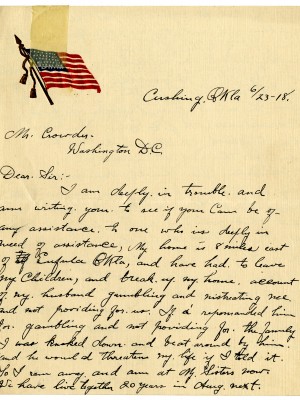 Cushing, Okla 6/23-18.
Mr. Crowder.
Washington D.C.
Dear Sir:-
I am deeply in trouble. and
am writing you. to see if you Can be of-
any assistance. to one who is deeply in
need of assistance, My home is 8 miles east
of Eufaula Okla, and have had to leave
my Children, and break up my home, account
of my husband gambling and mistreating me
and not providing for us. If I reproached him
for gambling and not providing for the family
I was knocked down and beat around by him
and he would threaten my life if I told it.
So I ran away, and am at My Sisters now.
We have lived together 20 years in Aug. next.